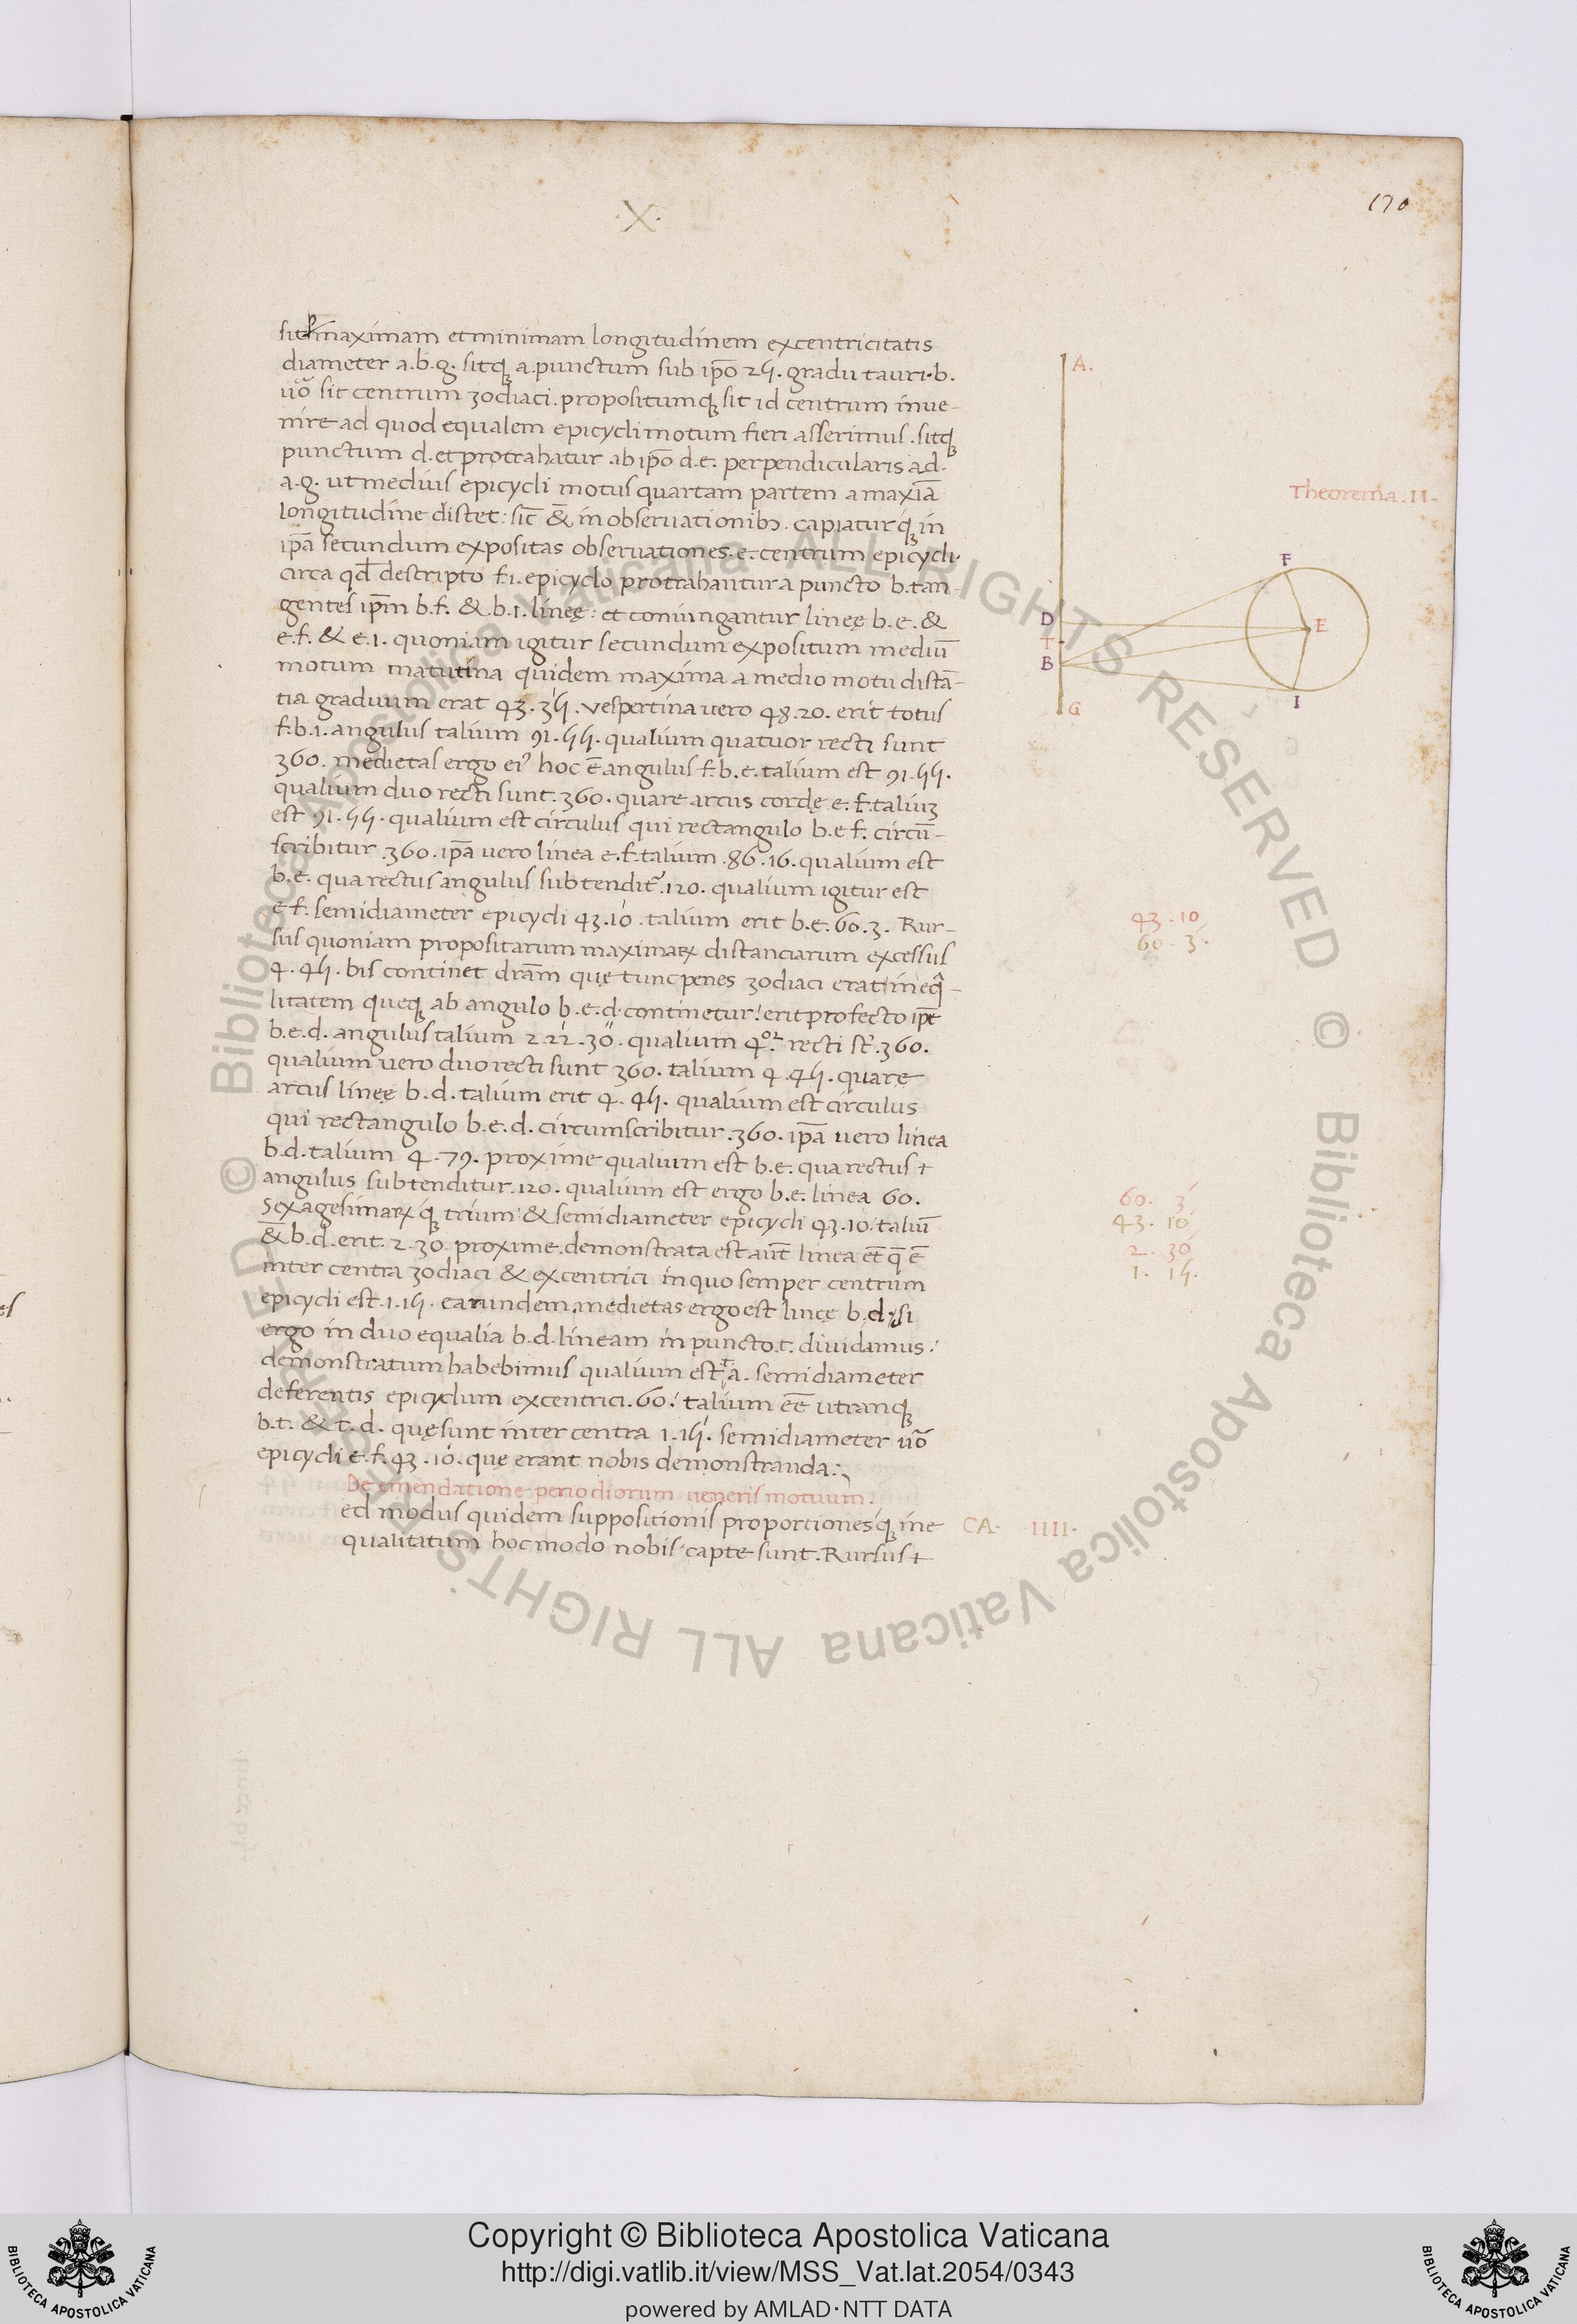 ·X·
170
sit p maximam et minimam longitudinem excentricitatis
diameter a.b.g. sitqꝫ a. punctum sub ip̄o 25. gradu tauri. b.
uo᷒ sit centrum zodiaci. propositumqꝫ sit id centrum inue-
nire ad quod equalem epicycli motum fieri asserimus. sitqꝫ
punctum d. et protrahatur ab ip̄o d.e. perpendicularis ad.
a.g. ut medius epicycli motus quartam partem a maxīa
longitudine distet: sic̄ & in obseruationibꝫ. capiaturqꝫ in
ip̄a secundum expositas obseruationes. e. centrum epicycli.
circa qd̄ descripto f.i. epicyclo protrahantur a puncto b. tan
gentes ip̄m b.f. & b.i. lineę: et coniungantur lineę b.e. &
e.f. & e.i. quoniam igitur secundum expositum mediū
motum matutina quidem maxima a medio motu distā-
tia graduum erat 43.35. vespertina uero 48.20. erit totus
f.b.i. angulus talium 91.55. qualium quatuor recti sunt
360. medietas ergo ei᾿ hoc ē angulus f.b.e. talium est 91.55.
qualium duo recti sunt. 360. quare arcus cordę e.f. taliuꝫ
est 91.55. qualium est circulus qui rectangulo b.e f. circū-
scribitur .360. ip̄a uero linea e.f. talium .86.16. qualium est
b.e. qua rectus angulus subtendit᷑. 120. qualium igitur est
e f. semidiameter epicycli 43.10. talium erit b.e. 60.3. Rur-
sus quoniam propositarum maximaꝝ distanciarum excessus
4.45. bis continet dr̄am quę tunc penes zodiaci erat ineq̄-
litatem queqꝫ ab angulo b.e.d. continetur! erit profecto ip̄e
b.e.d. angulus talium 2.22.30. qualium 4.or recti st̄.360.
qualium uero duo recti sunt 360. talium 4.45. quare
arcus lineę b.d. talium erit 4.45. qualium est circulus
qui rectangulo b.e.d. circumscribitur .360. ip̄a uero linea
b.d. talium 4.79. proxime qualium est b.e. qua rectus
angulus subtenditur. 120. qualium est ergo b.e. linea 60.
Sexagesimaꝝqꝫ trium & semidiameter epicycli 43.10. taliū
& b.d. erit 2.30. proxime. demonstrata est aut̄ linea et̄ q̄ ē
inter centra zodiaci & excentrici in quo semper centrum
epicycli est. 1.15. earundem. medietas ergo est lineę b.d. si
ergo in duo equalia b.d. lineam in puncto. t. diuidamus!
demonstratum habebimus qualium est t.a. semidiameter
deferentis epicyclum excentrici. 60! talium eē utranqꝫ
b.t. & t.d. quę sunt inter centra 1.15. semidiameter uo᷒
epicycli e.f. 43.10. quę erant nobis demonstranda:
De emendatione periodiorum ueneris motuum.
ed modus quidem suppositionis proportionesqꝫ ine
qualitatum hoc modo nobis capte sunt. Rursus
A.
Theorema .II.
F
D
E
T
B
I
G
43.10
60.3.
60. 3
43. 10
2. 30
1. 15.
CA. IIII.
Copyright © Biblioteca Apostolica Vaticana
http://digi.vatlib.it/view/MSS_Vat.lat.2054/0343
powered by AMLAD·NTT DATA
BIBLIOTECA APOSTOLICA VATICANA
BIBLIOTECA APOSTOLICA VATICANA
© Biblioteca Apostolica Vaticana ALL RIGHTS RESERVED © Biblioteca Apostolica Vaticana ALL RIGHTS RESERVED